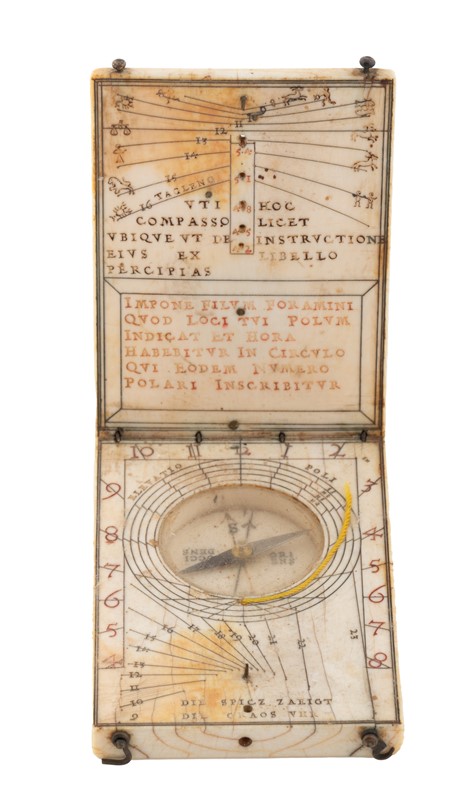 11
12
13
14
15
16 TAGLENG
54
51
48
45
42
VTI HOC
COMPASSO LICET
VBIQVE VT DE INSTRVCTIONE
EIVS EX LIBELLO
PERCIPIAS
IMPONE FILVM FORAMINI
QVOD LOCI TVI POLVM
INDICAT ET HORA
HABEBITVR IN CIRCVLO
QVI EODEM NVMERO
POLARI INSCRIBITVR
10 11 12 1 2
ELEVATIO POLI
9 3
8 4
7 5
6 6
5 7
4 8
S
15 16 17 18 19 20 21 22 23
14
13
12
11
10
9
DIE SPICZ ZAEIGT
DIE VER